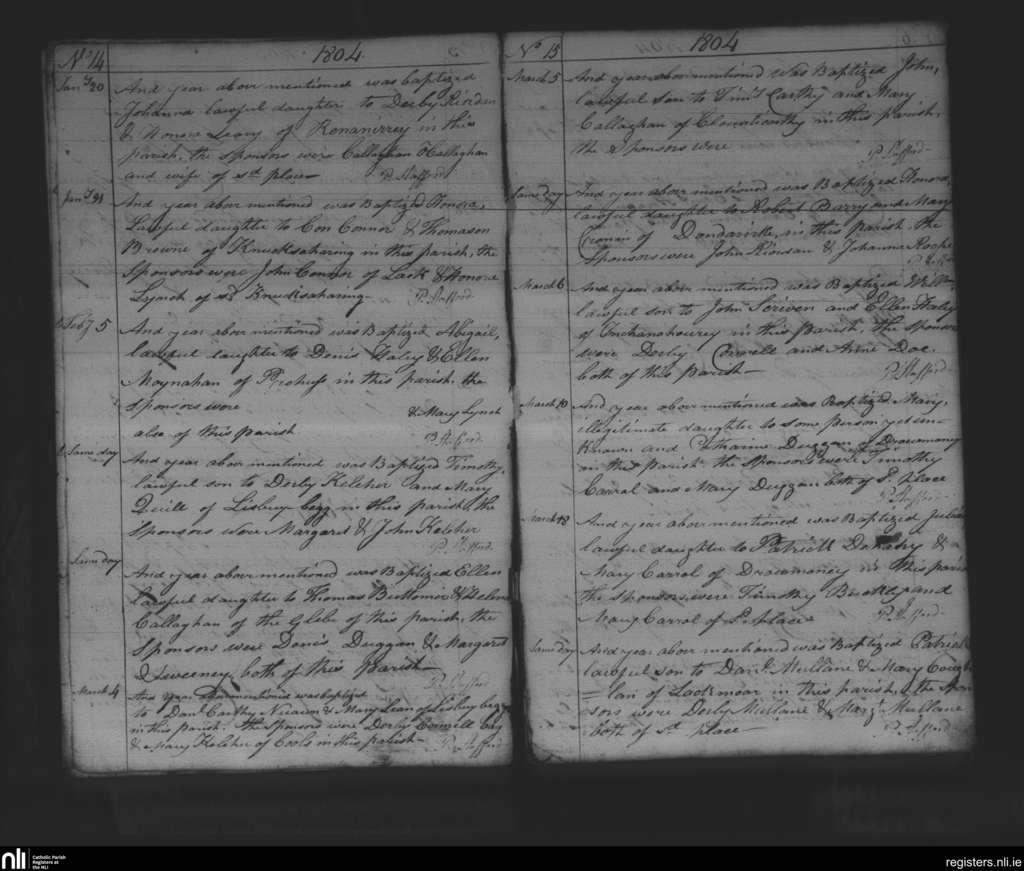 No 14 1804
Jany 20 And year above mentioned was baptized
Johanna lawful daughter to Derby Riordan
& Honora Leary of Renanirree in this
parish, the sponsors were Callaghan O Callaghan
and wife of sd place P. Stafford
Jany 31 And year above mentioned was Baptized Honora,
Lawful daughter to Con Connor & Thomason
Browne of Knucksaharing in this parish, the
Sponsors were John Connor of Lack & Honora
Lynch of sd Knucksaharing P. Stafford
Feby 5 And year above mentioned was Baptized Abigail,
lawful daughter to Denis Haly & Ellen
Moynahan of in this parish. the
sponsors were & Mary Lynch
also of this parish P. Stafford
Same day And year above mentioned was Baptized Timothy,
lawful son to Derby Kelcher and Mary
Quill of Lisbuy begg in this parish, the
Sponsors were Margaret & John Kelcher
P. Stafford
Same day And year above mentioned was Baptized Ellen
lawful daughter to Thomas Buttomer &
Callaghan of the Glebe of this parish, the
Sponsors were Denis Duggan & Margaret
Sweeney both of this parish
P. Stafford
March 4 And year above mentioned was baptized
to Danl Carthy & Mary Lean of Lisbuy begg
in this parish. the Sponsors were Derby Connell
& Mary Kelcher of Cools in this parish P. Stafford
No 15 1804
March 5 And year above mentioned was Baptized John,
lawful son to Timt Carthy and Mary
Callaghan of in this parish,
the Sponsors were
P. Stafford
Same day And year above mentioned was Baptized Honora,
lawful daughter to Robert Barry and Mary
Cronin of in this parish. the
Sponsors were John Riordan & Johanna Roche
March 6 And year above mentioned was Baptized Willm
lawful son to John Scriven and Ellen Haly
of in this parish. the sponsors
were Derby Connell and Anne Doe
both of this parish
P. Stafford
March 10 And year above mentioned was Baptized Mary,
illegitimate daughter to some person yet un-
known and Catharine Duggan of Drawmoney
in this parish the sponsors were Timothy
Carrol and Mary Duggan both of sd place
P. Stafford
March 18 And year above mentioned was Baptized Julian
lawful daughter to Patrick Donahy &
Mary Carrol of Drawmoney in this parish
the sponsors were Timothy and
Mary Carrol of sd place P. Stafford
Same day And year above mentioned was Baptized Patrick
lawful son to Danl Mullane & Mary Cough
=lan of Lackmoar in this parish. the Spon
sors were Derby Mullane & Margt Mullane
both of sd place P. Stafford
nli Catholic Parish
Registers at
the NLI
registers.nli.ie